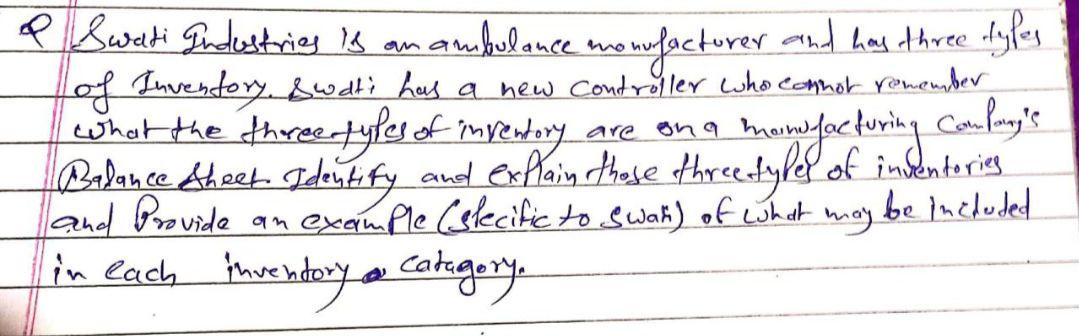 Q Swati Industries is an ambulance manufacturer and has three types
of Inventory. Swati has a new Controller who cannot remember
what the three types of inventory are on a manufacturing Company's
Balance Sheet. Identify and explain those three types of inventories
and Provide an example (specific to Swati) of what may be included
in each inventory catagory.